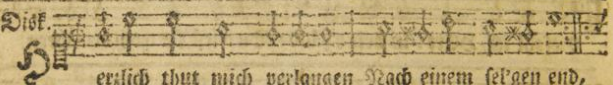 Disk.
Herzlich thut mich verlangen Nach einem sel'gen end,